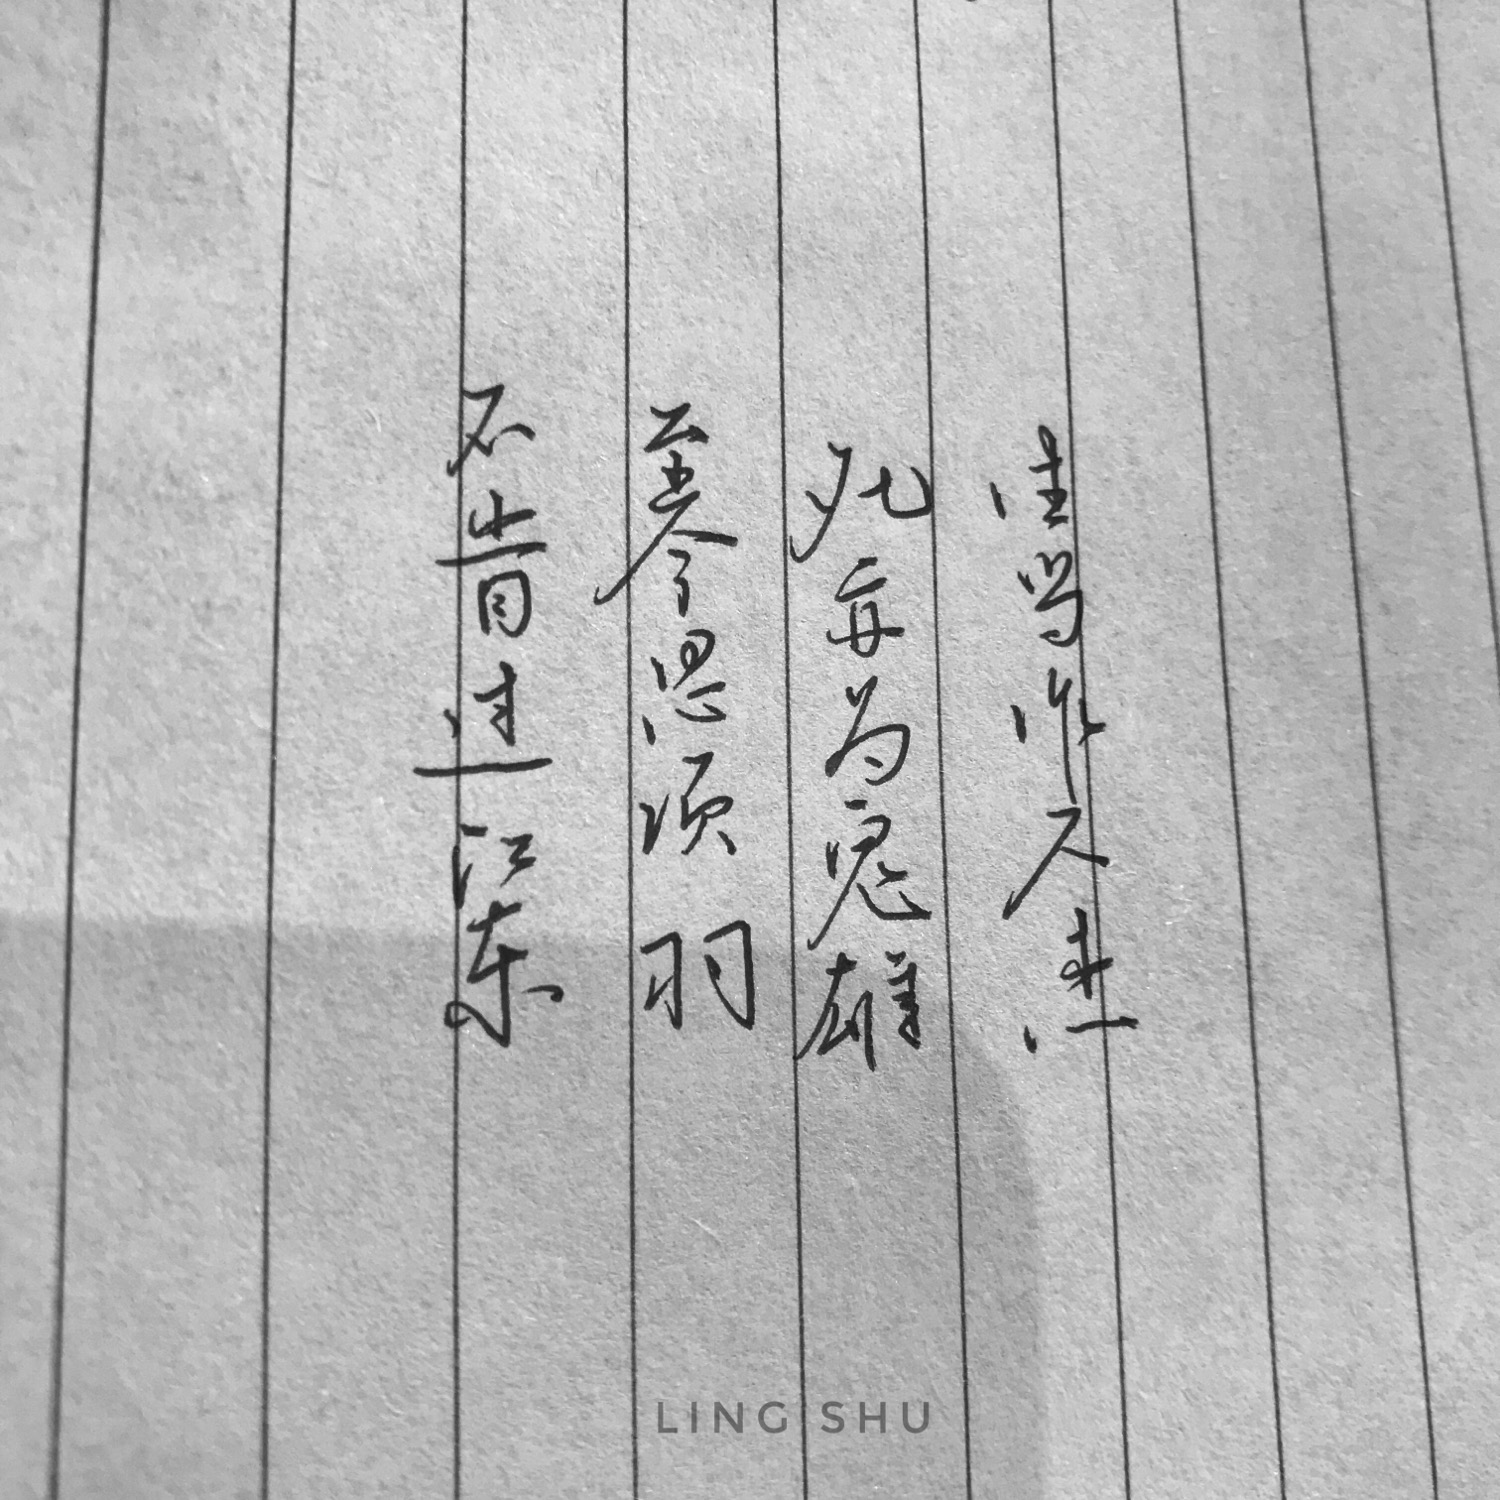 生当作人杰
死亦为鬼雄
至今思项羽
不肯过江东
LING SHU